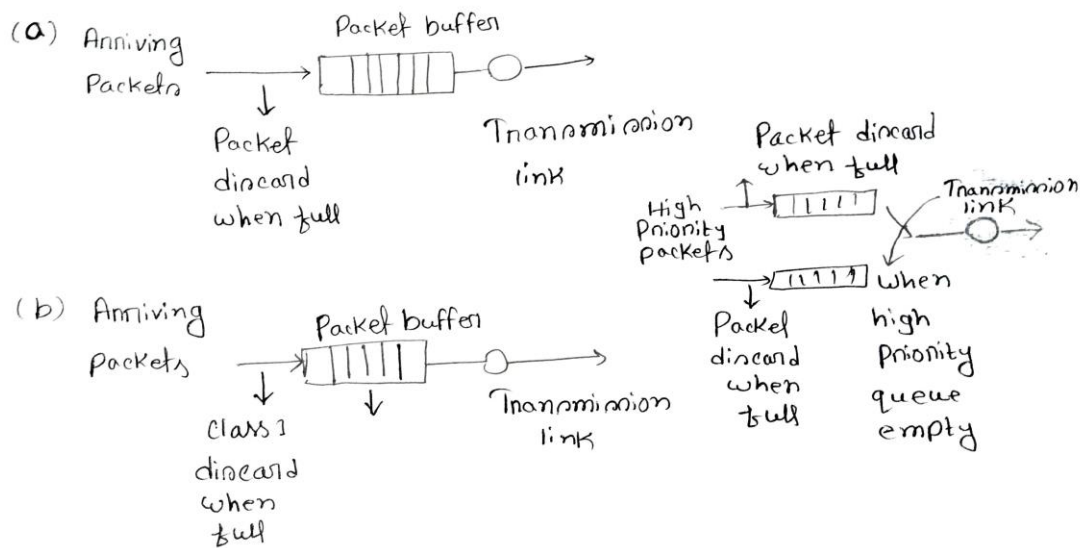 (a) Arriving
Packets
Packet buffer
Packet
discard
when full
Transmission
link
Packet discard
when full
High
Priority
packets
Transmission
link
Packet
discard
when
full
when
high
Priority
queue
empty
(b) Arriving
packets
Packet buffer
Class 1
discard
when
full
Transmission
link